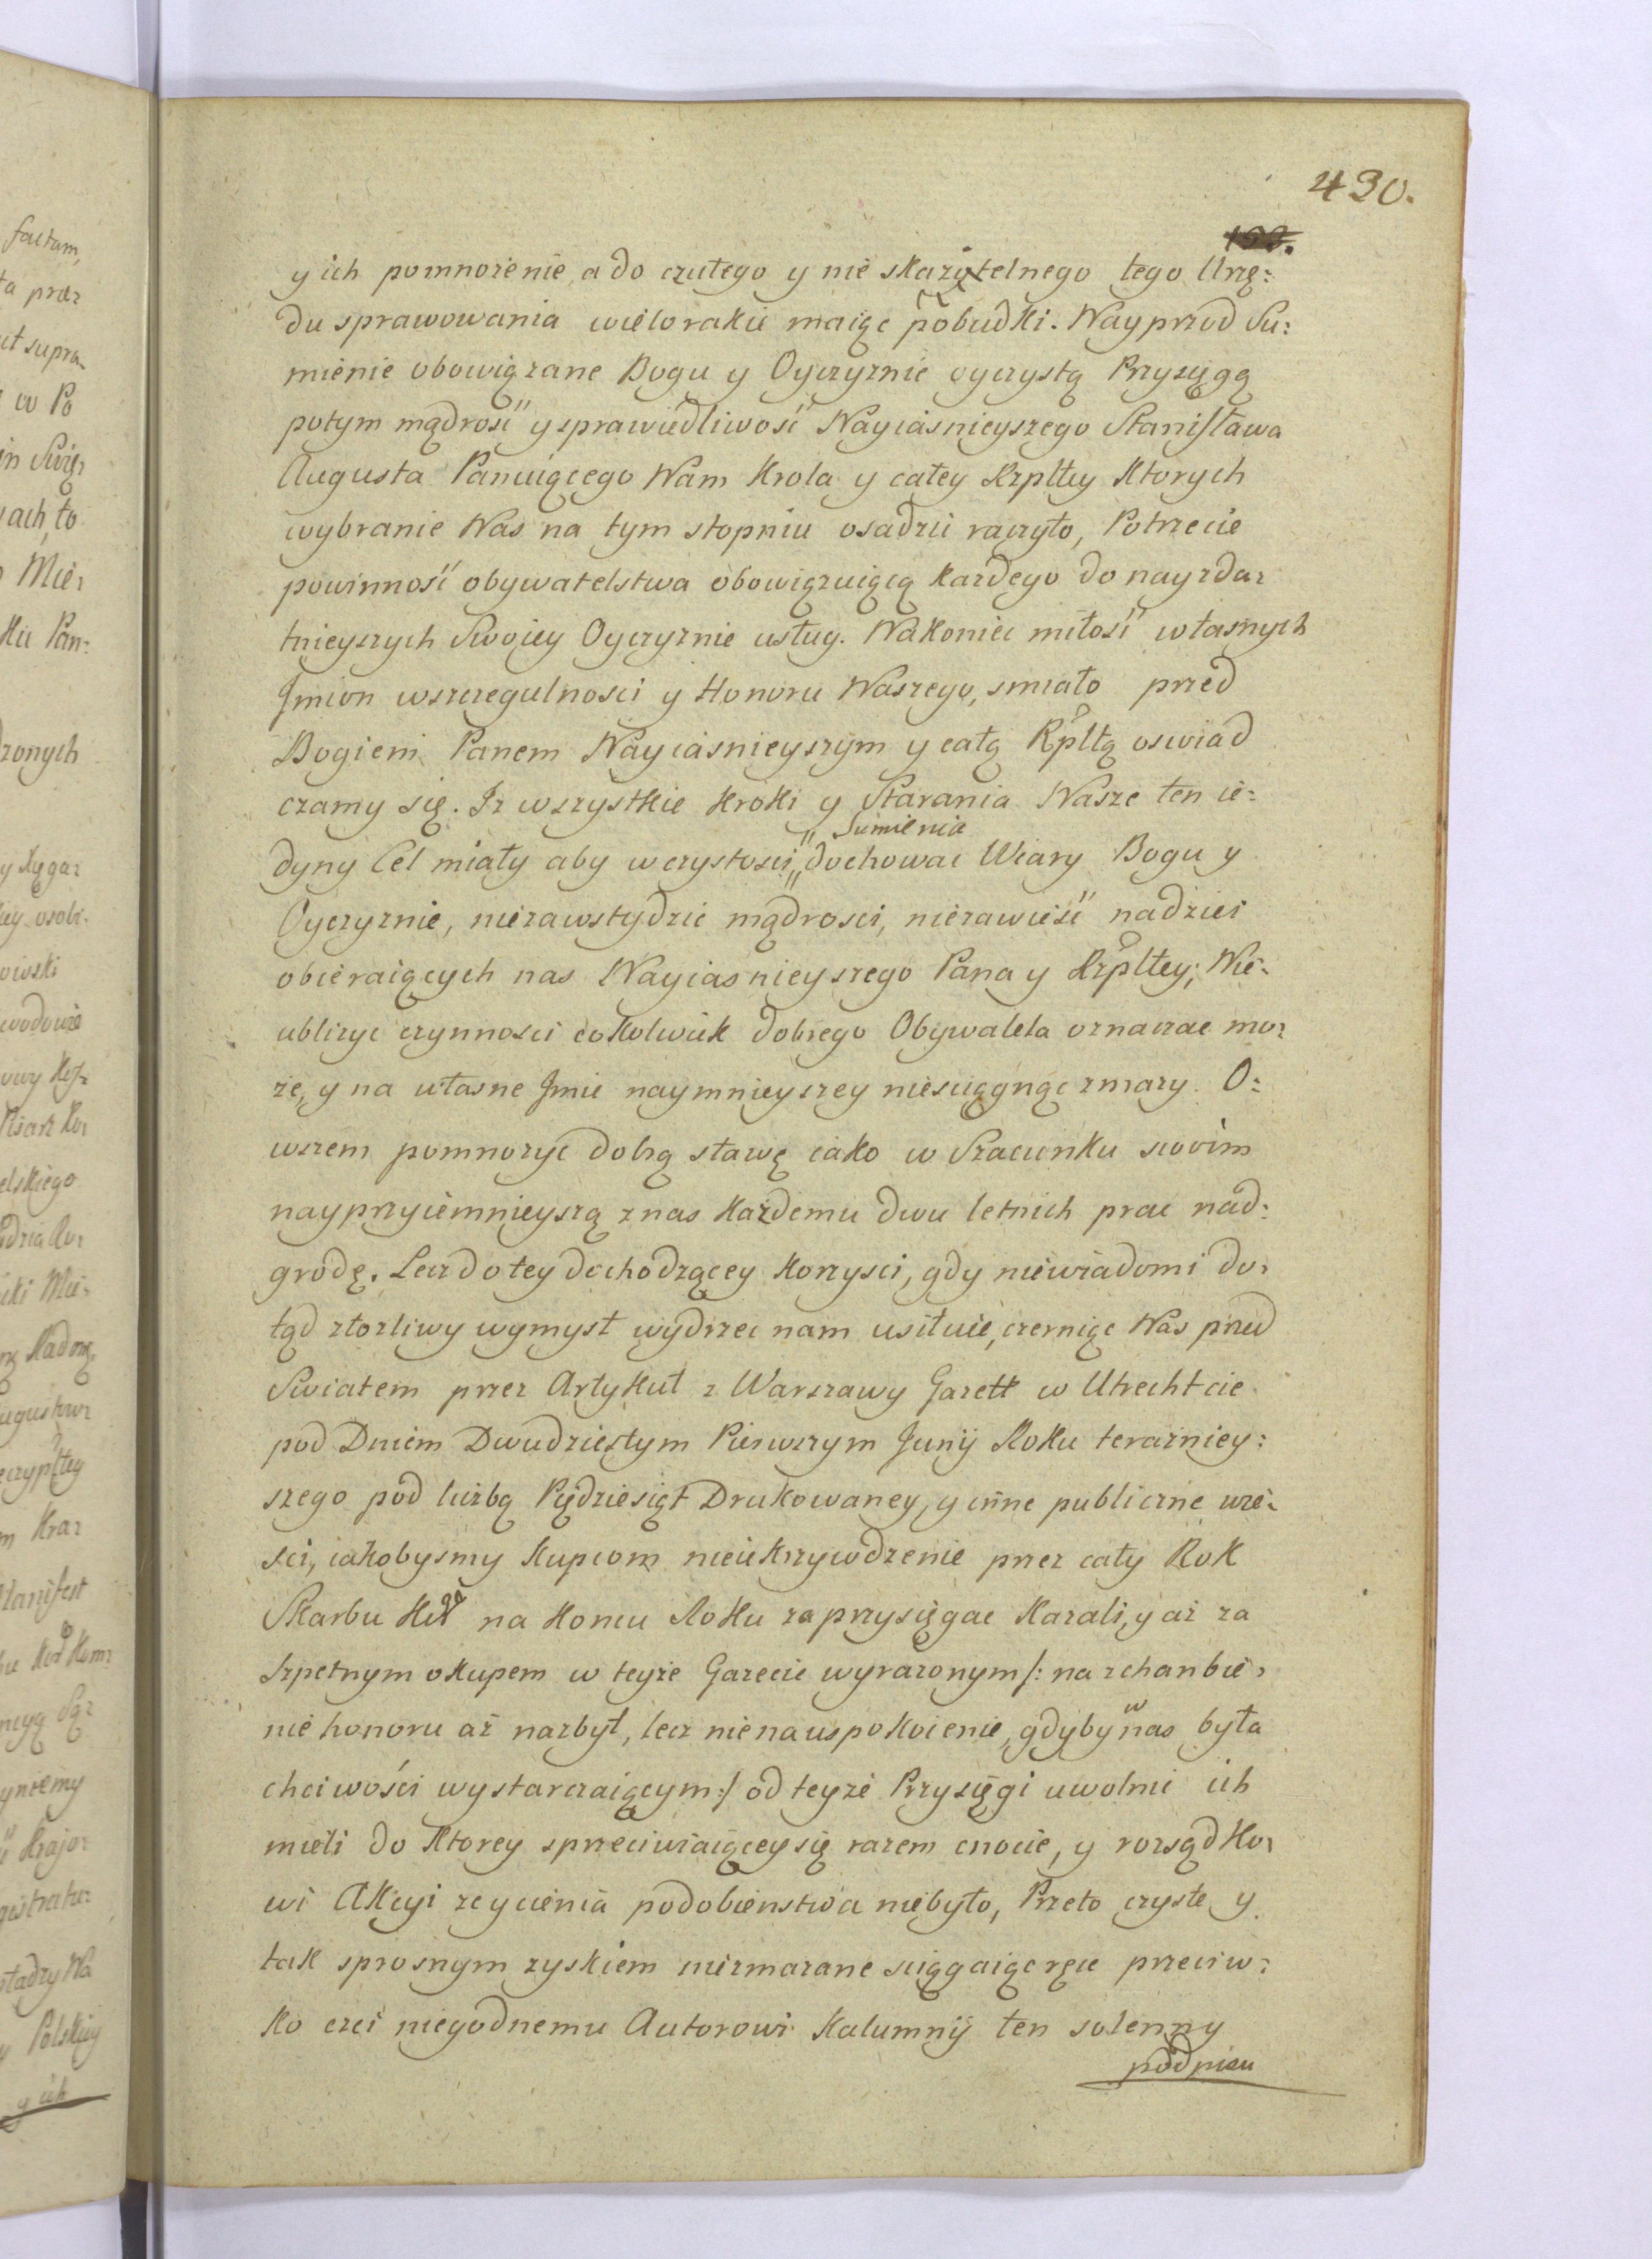 430.
y ich pomnożenie, a do czułego y nie skazytelnego tego Urzę:
du sprawowania wielorakie maiąc pobudki. Nayprzod Su:
mienie obowiązane Bogu y Oyczyznie oyczystą Przysięgą
potym mądrosć y sprawiedliwosć Nayiasnieyszego Stanisława
Augusta Panuiącego Nam Krola y całey Rzpltey Ktorych
wybranie Nas na tym stopniu osadzić raczyło, Potrzecie
powinnosć obywatelstwa obowiązuiącą Każdego do nayzda:
tnieyszych Swoiey Oyczyznie usług. Nakoniec miłosć własnych
Jmion wszczegulnosci y Honoru Naszego, smiało przed
Bogiem Panem Nayiasnieyszym y całą Rpltą oswiad
czamy się. Iż wszystkie Kroki y Starania Nasze ten ie:
Sumienia
dyny Cel miały aby w czystosci " dochować Wiary Bogu y
Oyczyznie, niezawstydzić mądrosci, niezawiesć nadziei
obieraiących nas Nayiasnieyszego Pana y Rzpltey; Nie:
ubliżyć czynnosci cokolwiek dobrego Obywatela oznaczać mo:
że, y na własne Jmie naymnieyszey niesciągnąć zmazy. O:
wszem pomnożyć dobrą sławę iako w Szacunku swoim
nayprzyiemnieyszą znas Każdemu dwu letnich prac nad:
grodę. Lecz do tey dochodzącey Korzysci, gdy niewiadomi do:
tąd złozliwy wymysł wydrzeć nam usiłuie, czerniąc Nas przed
Swiatem przez Artykuł z Warszawy Gazett w Utrechtcie
pod Dniem Dwudziestym Pierwszym Junij Roku terazniey:
szego pod liczbą Pięćdziesiąt Drukowaney, y inne publiczne wie:
sci, iakobysmy Kupcom nieukrzywdzenie przez cały Rok
Skarbu KW na Koncu Roku zaprzysięgac Kazali, y aż za
szpetnym okupem w teyże Gazecie wyrazonym /: na zchanbie:
nie honoru aż nazbyt, lecz nienauspokoienie, gdyby w nas była
chciwości wystarczaiącym :/ od teyże Przysięgi uwolnić ich
mieli do Ktorey sprzeciwiaiącey się razem cnocie, y rozsądko:
wi Akcyi zcycienia podobienstwa niebyło, Przeto czyste y
tak sprosnym zyskiem niezmazane sciągaiąc ręce przeciw:
ko czci niegodnemu Autorowi Kalumnij ten solenny
podpisu